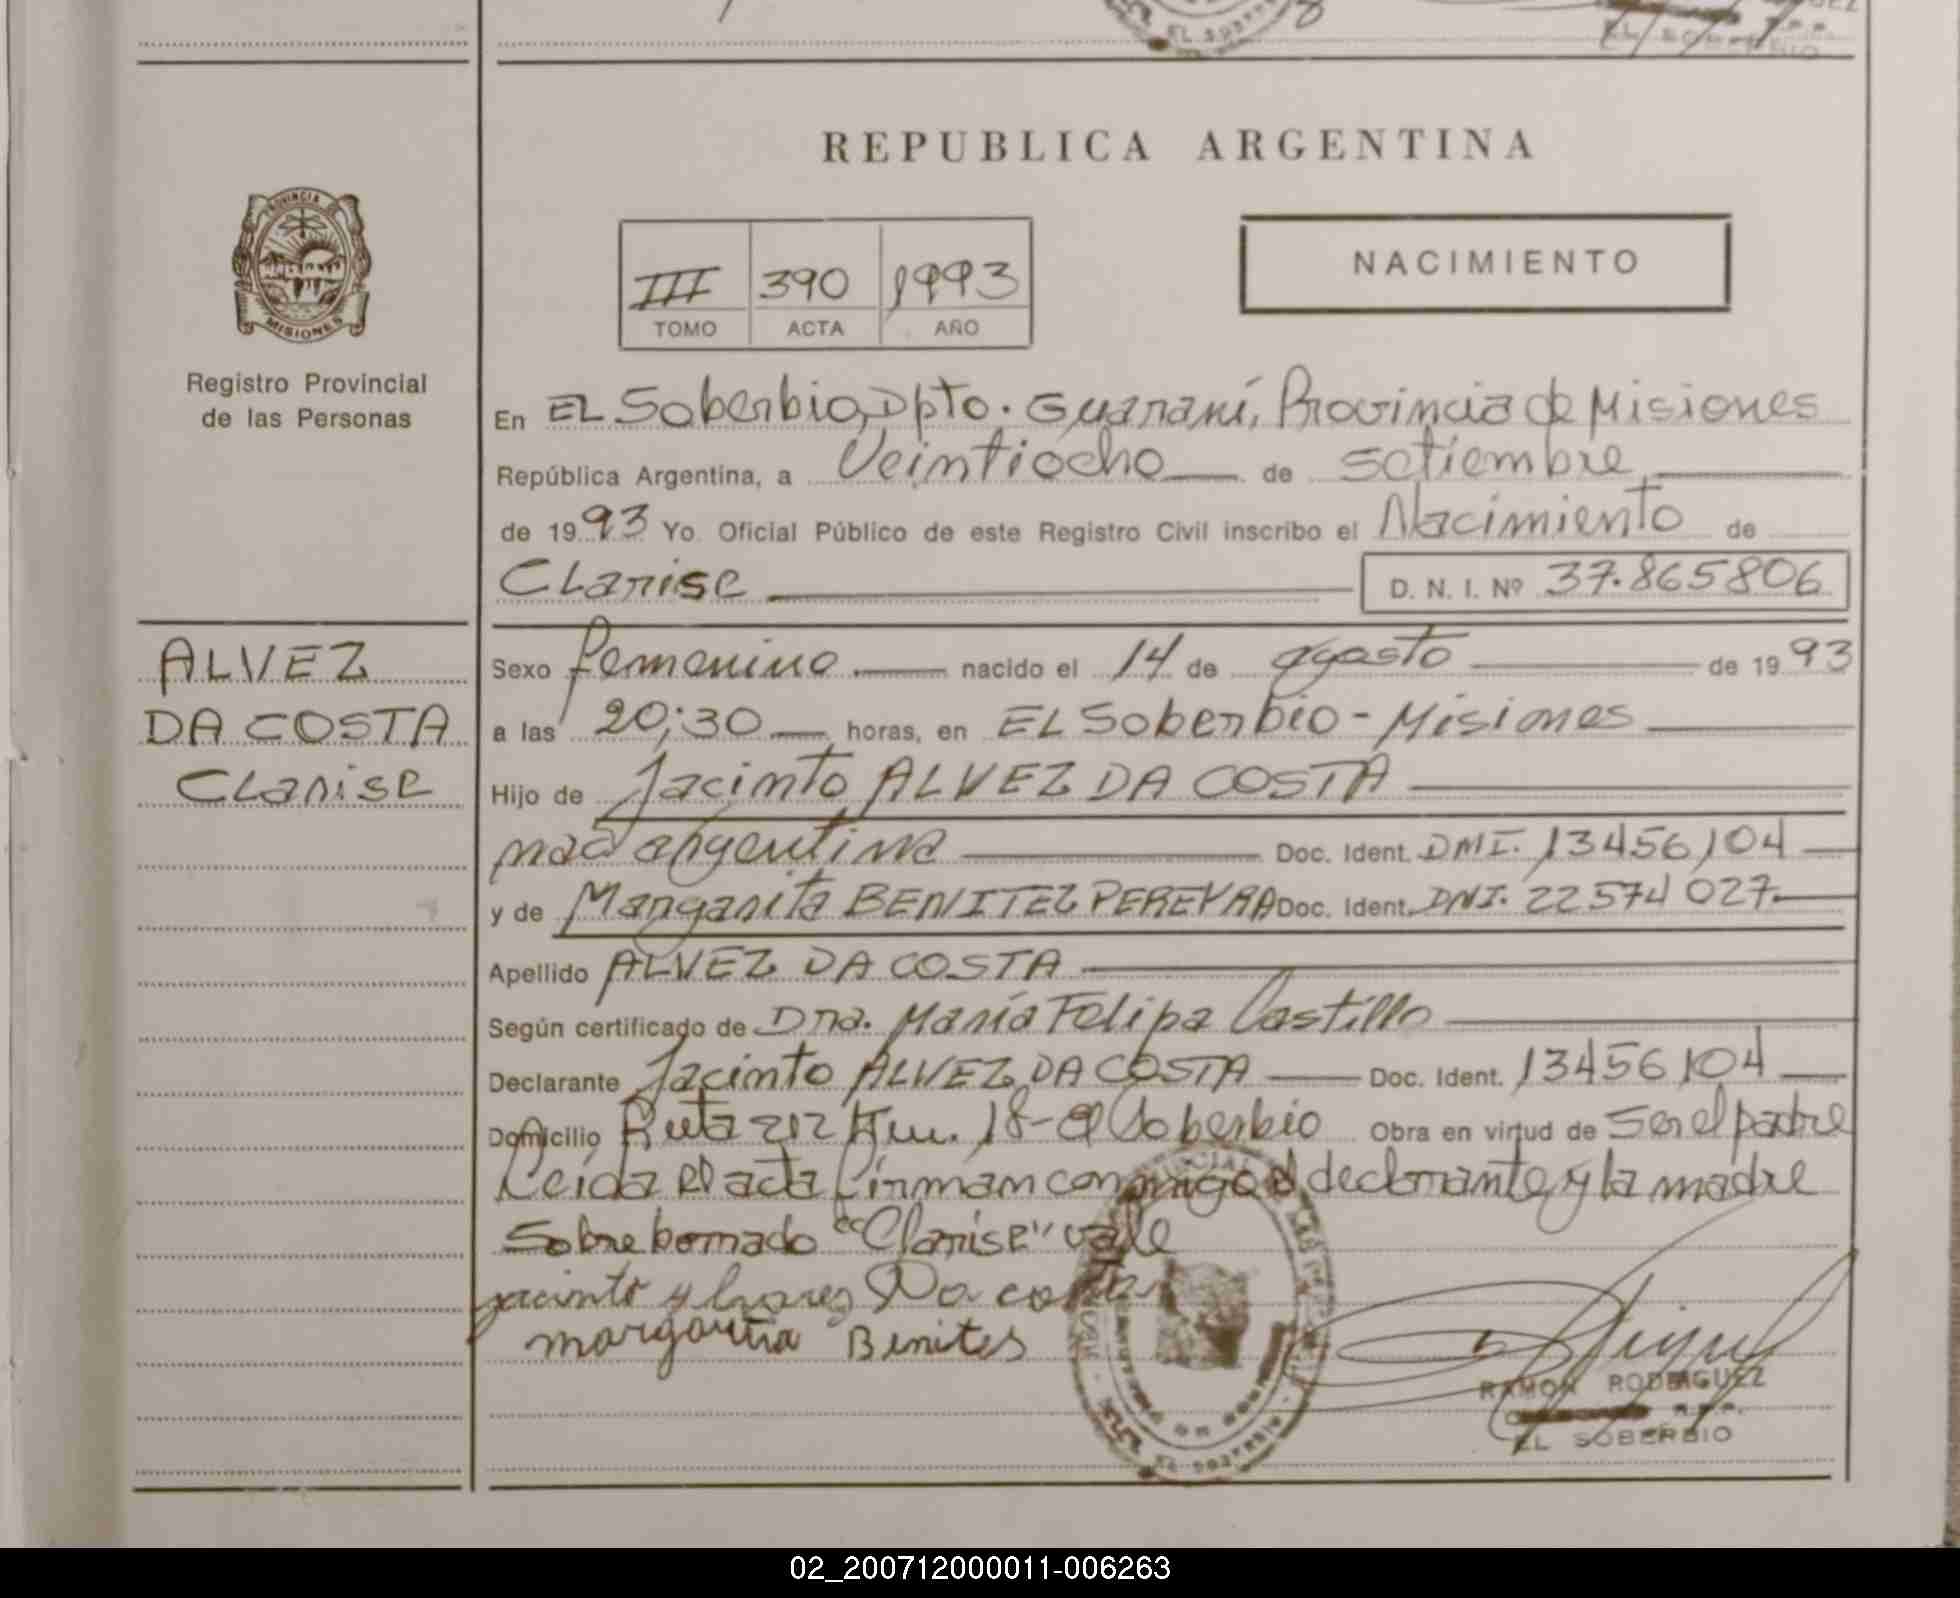 EL SOBERBIO
REPUBLICA ARGENTINA
PROVINCIA DE
MISIONES
Registro Provincial
de las Personas
III 390 1993
TOMO ACTA AÑO
NACIMIENTO
En EL Soberbio, Dpto. Guaraní, Provincia de Misiones
República Argentina, a Veintiocho de setiembre
de 1993 Yo Oficial Público de este Registro Civil inscribo el Nacimiento de
Clarise D. N. I. Nº 37.865806
ALVEZ
DA COSTA
Clarise
Sexo femenino nacido el 14 de agosto de 1993
a las 20;30 horas, en EL Soberbio - Misiones
Hijo de Jacinto ALVEZ DA COSTA
nac argentina Doc. Ident. DNI. 13456104
y de Margarita BENITEZ PEREYRA Doc. Ident. DNI. 22574027
Apellido ALVEZ DA COSTA
Según certificado de Dra. María Felipa Castillo
Declarante Jacinto ALVEZ DA COSTA Doc. Ident. 13456104
Domicilio Ruta 212 Km. 18 - El Soberbio Obra en virtud de Ser el padre
Leída el acta firman conmigo el declarante y la madre
Sobreborrado "Clarise" vale
jacinto Da costa
margarita Benites
RAMON RODRIGUEZ
EL SOBERBIO
02_200712000011-006263